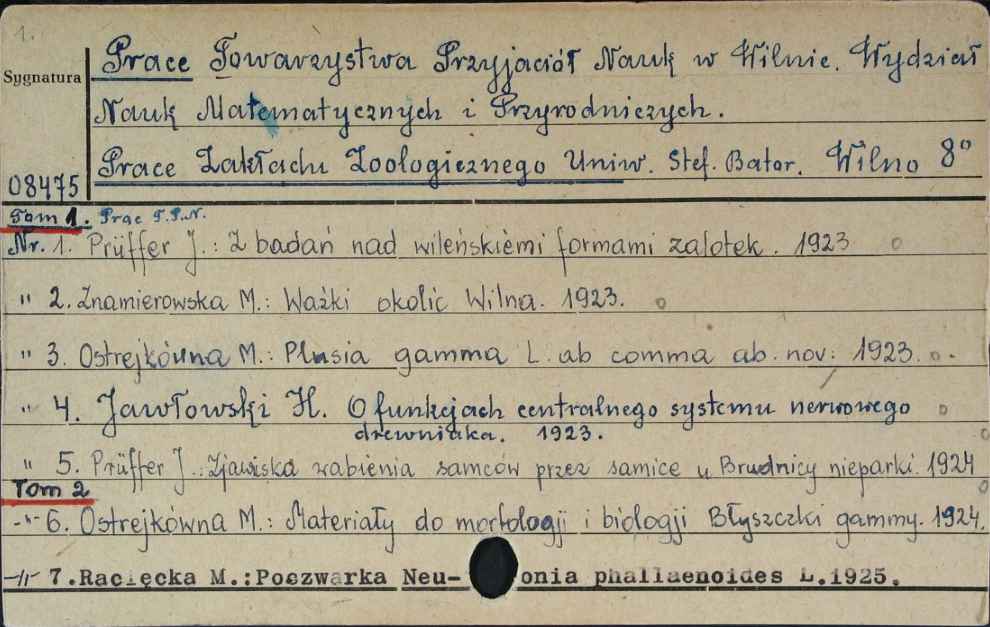 1.
Prace Towarzystwa Przyjaciół Nauk w Wilnie. Wydział
Sygnatura
Nauk Matematycznych i Przyrodniczych.
Prace Zakładu Zoologicznego Uniw. Stef. Bator. Wilno 8°
08475
Tom 1. Prac T.P.N.
Nr. 1. Prüffer J.: Z badań nad wileńskiemi formami zalotek. 1923
" 2. Znamierowska M.: Ważki okolic Wilna. 1923.
" 3. Ostrejkówna M.: Plusia gamma L. ab comma ab. nov: 1923.
" 4. Jawłowski H. O funkcjach centralnego systemu nerwowego
drewniaka. 1923.
" 5. Prüffer J.: Zjawiska wabienia samców przez samice u Brudnicy nieparki. 1924
Tom 2
-"- 6. Ostrejkówna M.: Materiały do morfologji i biologji Błyszczki gammy. 1924.
-"- 7. Racięcka M.: Poczwarka Neu- onia phallaenoides L. 1925.